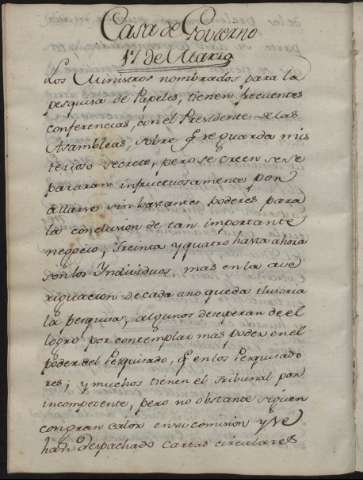 Casa de Govierno
17 de Marzo
Los Ministros nombrados para la
pesquisa de Papeles, tienen frecuentes
conferencias, con el Presidente de las
Asambleas, sobre q.e se guarda mis
terioso secreto, pero se creen se se
pararan infructuosamente por
allarse sin bastantes poderes para
la conclusion de tan importante
negocio, treinta y quatro hasta ahora
son los Individuos, mas en la ave
riguacion de cada uno queda ilusoria
la pesquisa, algunos desesperan de el
logro por contemplar mas poder en el
poder del Pesquisado, q.e en los Pesquisado
res, y muchos tienen el Tribunal por
incompetente, pero no obstante siguen
con gran calor en su comision y se
han despachado cartas circulares